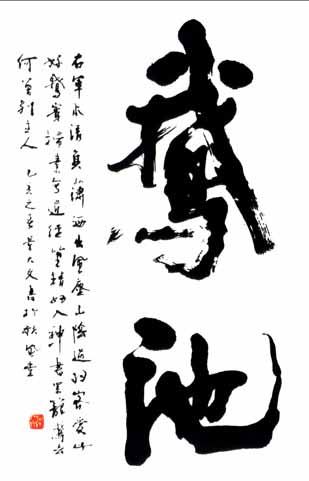 鵞池
右軍本清真瀟洒出風塵山陰過羽客愛此
好鵞賓掃素寫道經筆精妙入神書罷籠鵞去
何曾別主人